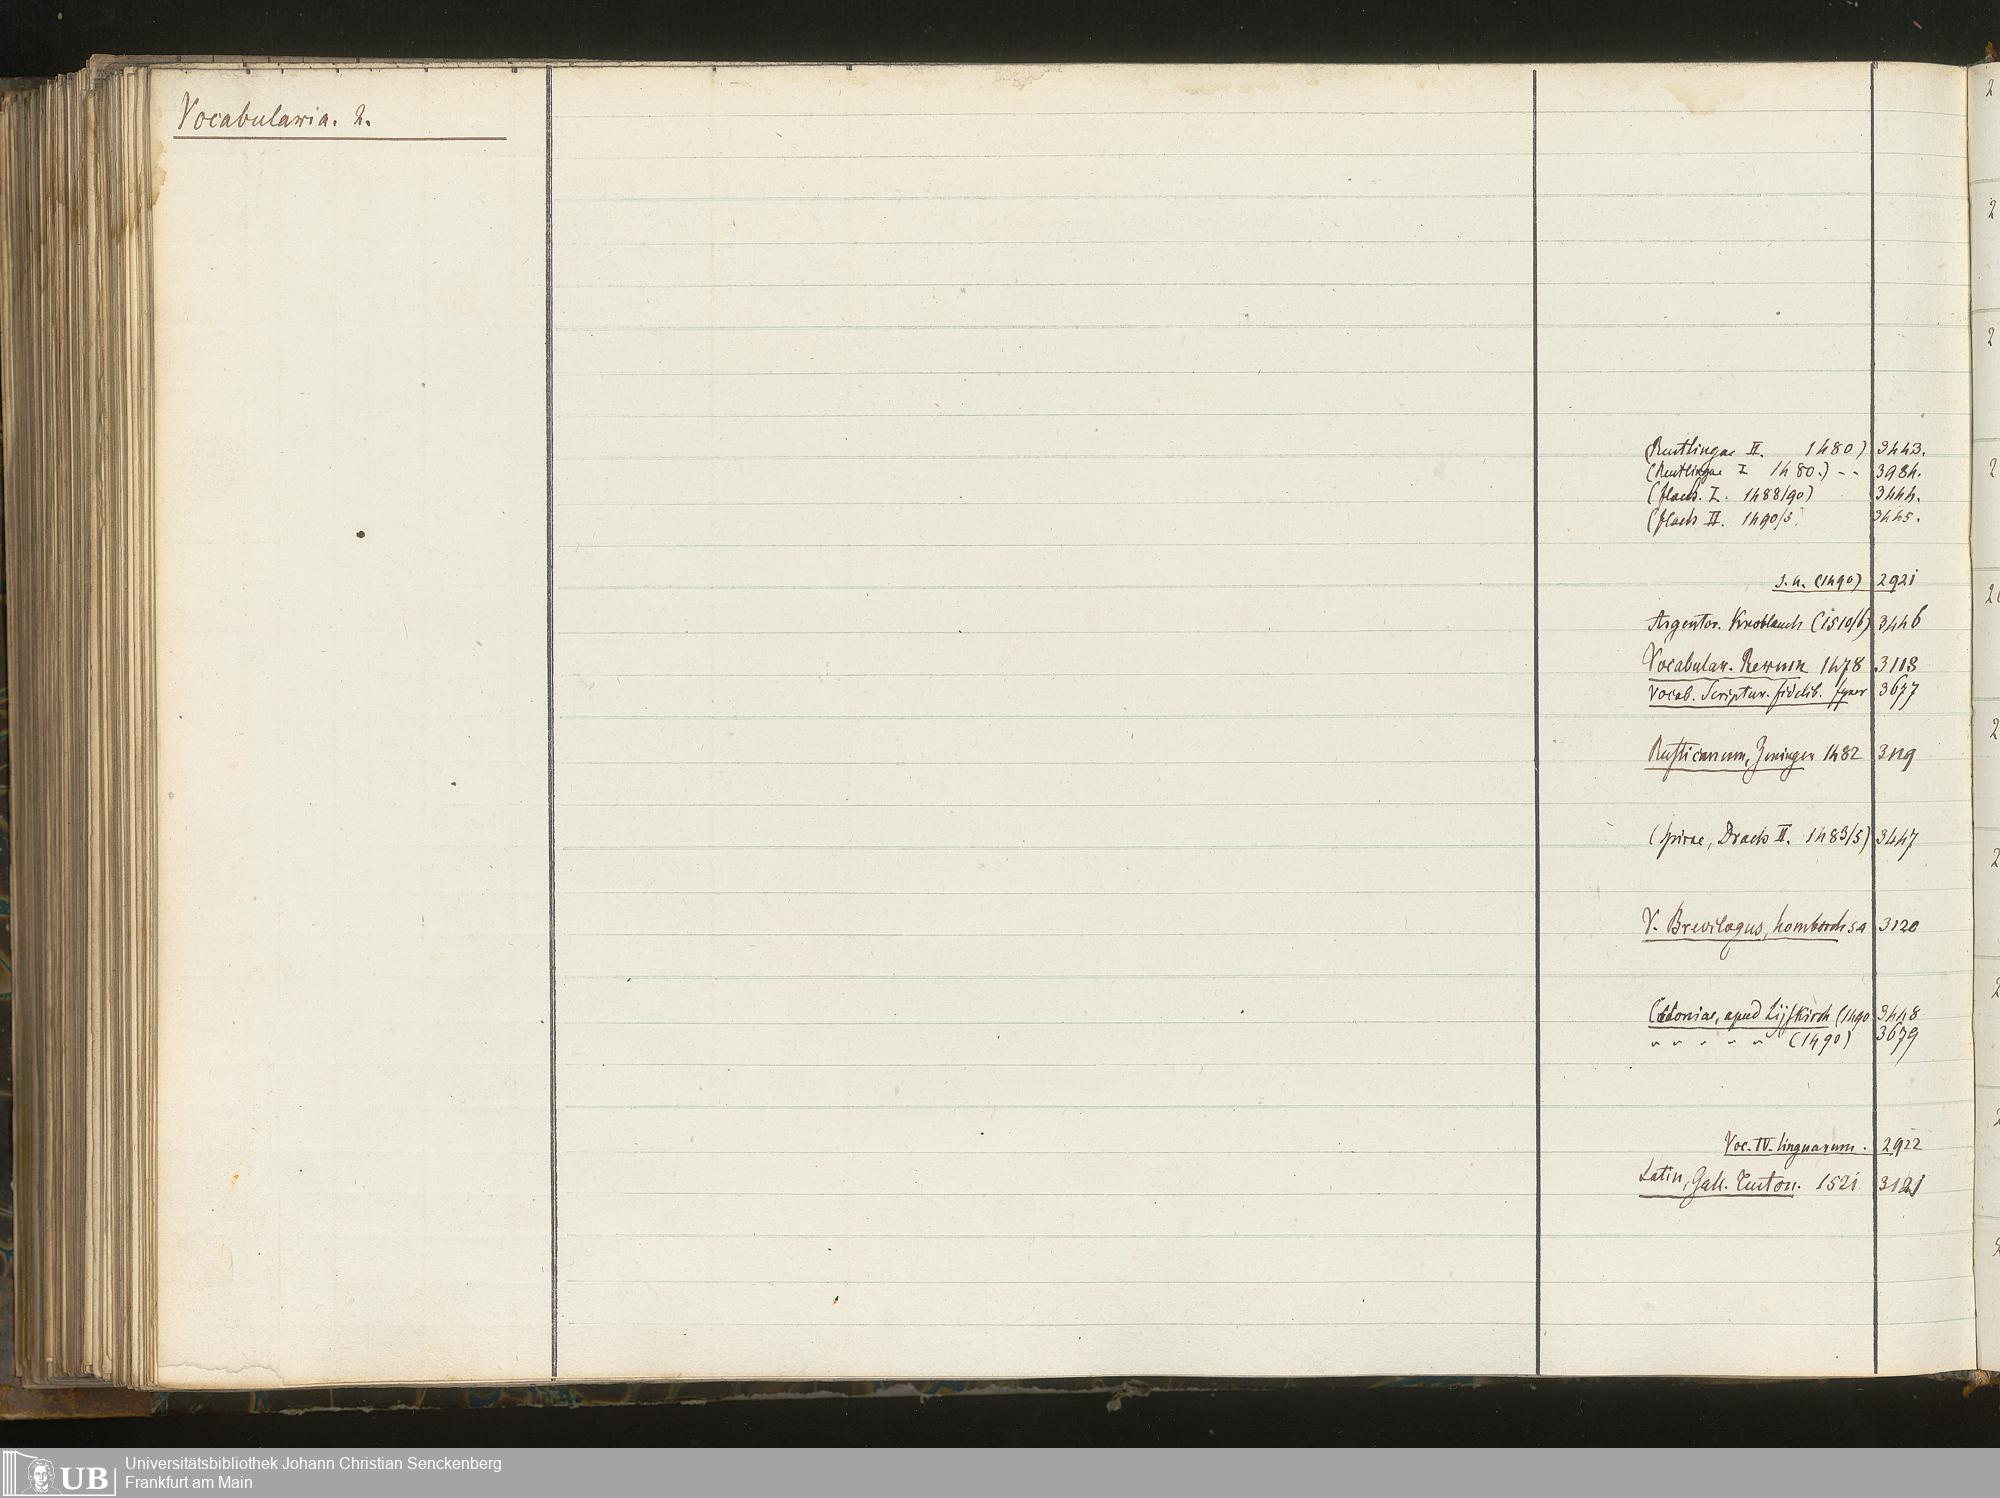 Vocabularia. 2.
(Reutlingae II. 1480) 3443.
(Reutlingae I 1480.) -- 3984.
(flach. I. 1488/90) 3444.
(flach II. 1490/5) 3445.
s.a. (1490) 2921
Argentor. Knoblauch (1510/6) 3446
Vocabular. Rerum 1478 3118
Vocab. Scriptur. fidelib. fyner 3677
Rusticanum, Zeninger 1482 3119
(Spirae, Drach II. 1483/5) 3447
V. Breviloqus, homborch sa 3120
Coloniae, apud Lijskirch (1490 3448
" " " " " (1490) 3679
Voc. IV. linguarum. 2922
Latin, Gall. Teuton. 1521 3121
UB
Universitätsbibliothek Johann Christian Senckenberg
Frankfurt am Main